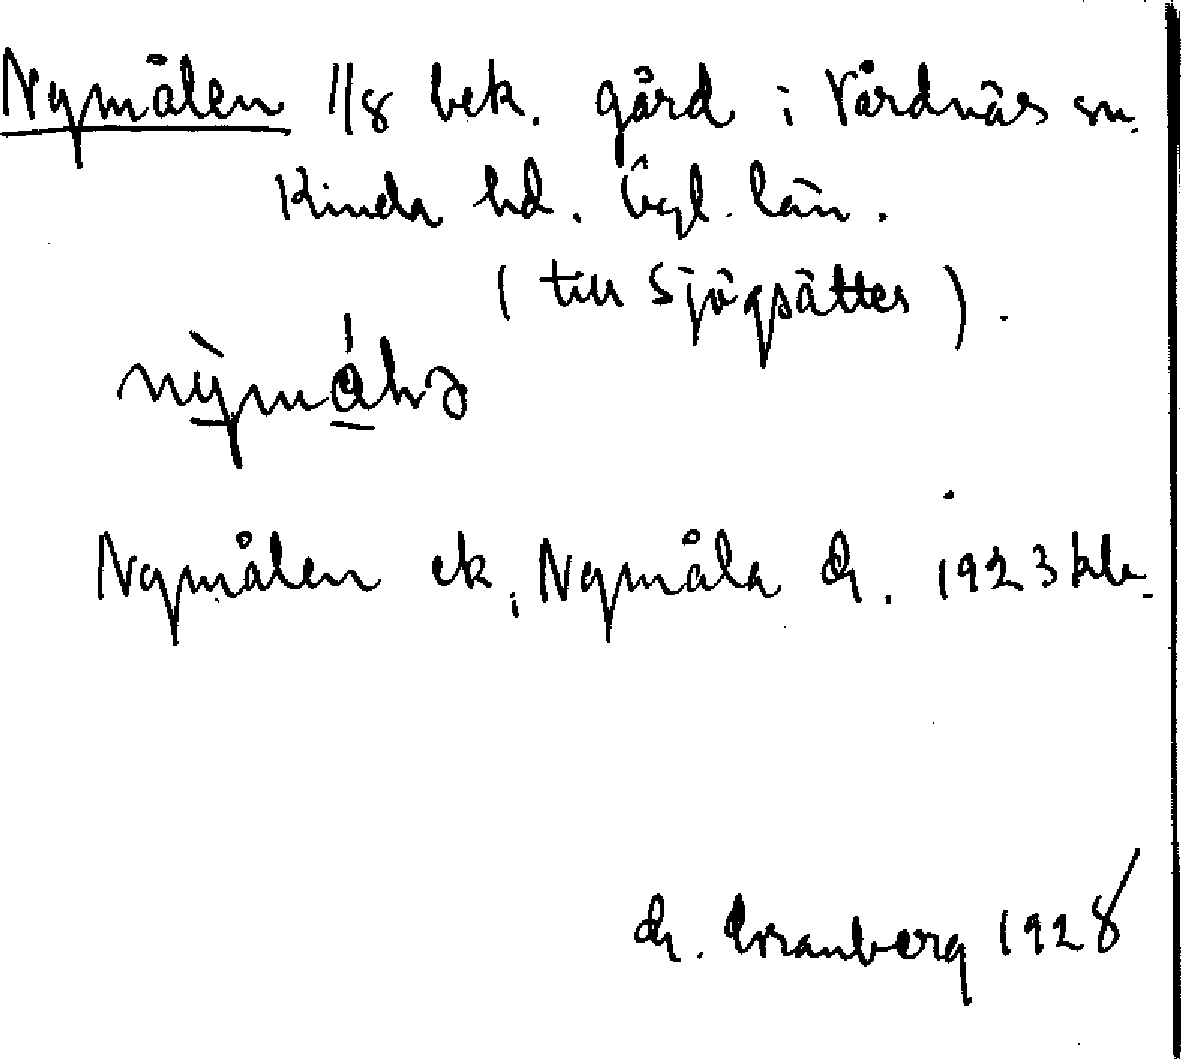 Nymålen 1/8 bek. gård i Vårdnäs sn.
Kinda hd. Ögl. län.
(till Sjögsätter).
nỳmálsə
Nymålen ek; Nymåla 1923
Granberg 1928